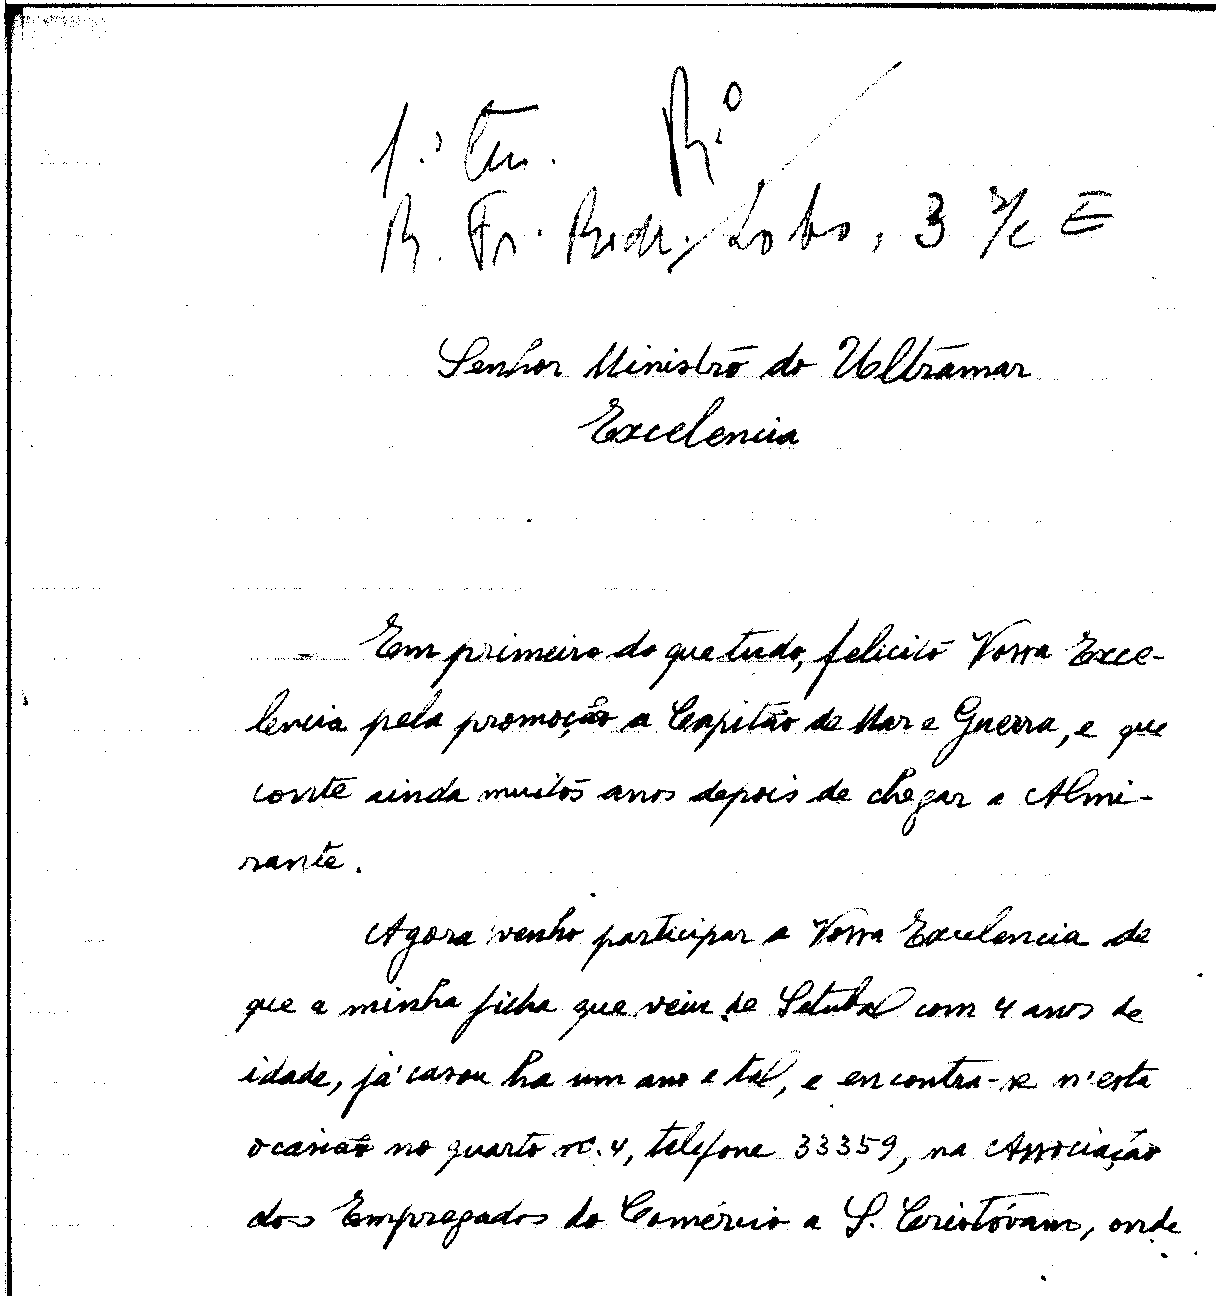 1.º ten. R.º
R. Fr. Rodr. Lobo, 3 r/c E
Senhor Ministro do Ultramar
Excelencia
Em primeiro do que tudo, felicito Vossa Exce-
lencia pela promoção a Capitão de Mar e Guerra, e que
conte ainda muitos anos depois de chegar a Almi-
rante.
Agora venho participar a Vossa Excelencia de
que a minha filha que veiu de Setubal com 4 anos de
idade, já casou ha um ano e tal, e encontra-se n'esta
ocasião no quarto nº. 4, telefone 33359, na Associação
dos Empregados do Comércio a S. Cristóvam, onde